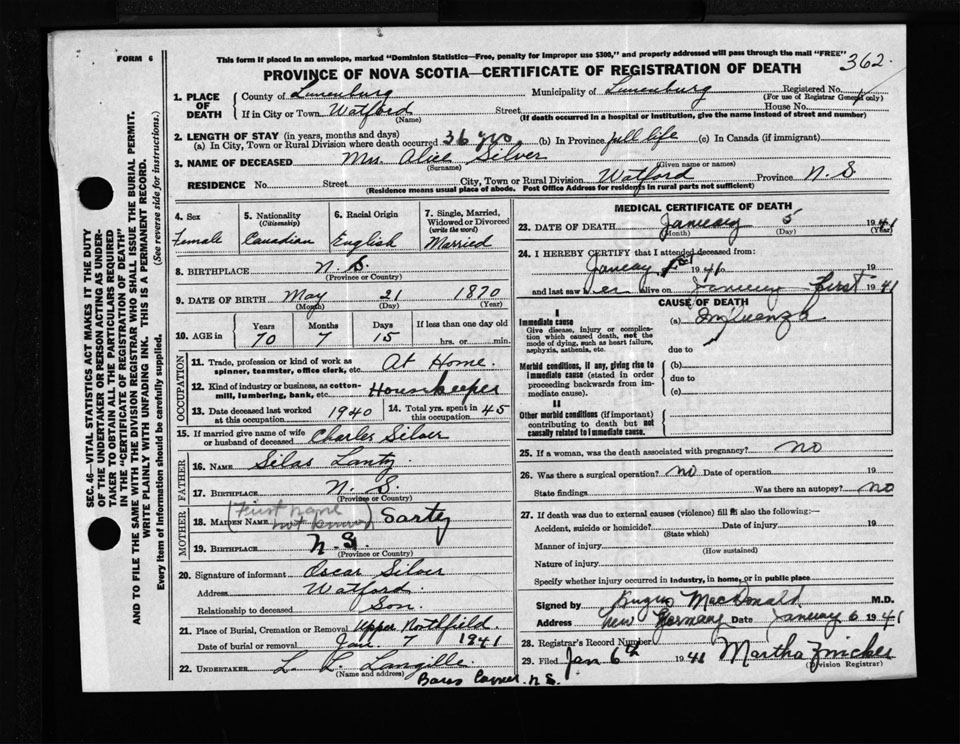 FORM 6
This form if placed in an envelope, marked "Dominion Statistics—Free, penalty for improper use $300," and properly addressed will pass through the mail "FREE"
362.
PROVINCE OF NOVA SCOTIA—CERTIFICATE OF REGISTRATION OF DEATH
SEC. 46—VITAL STATISTICS ACT MAKES IT THE DUTY
OF THE UNDERTAKER OR PERSON ACTING AS UNDER-
TAKER TO OBTAIN ALL THE PARTICULARS REQUIRED
IN THE "CERTIFICATE OF REGISTRATION OF DEATH"
AND TO FILE THE SAME WITH THE DIVISION REGISTRAR WHO SHALL ISSUE THE BURIAL PERMIT.
WRITE PLAINLY WITH UNFADING INK. THIS IS A PERMANENT RECORD.
Every item of Information should be carefully supplied. (See reverse side for instructions)
1. PLACE OF DEATH
County of Lunenburg Municipality of Lunenburg Registered No.
(For use of Registrar General only)
If in City or Town Watford Street House No.
(Name) (If death occurred in a hospital or Institution, give the name instead of street and number)
2. LENGTH OF STAY (in years, months and days)
(a) In City, Town or Rural Division where death occurred 36 yrs (b) In Province full life (c) In Canada (if immigrant)
3. NAME OF DECEASED Mrs. Alice Silver
(Surname) (Given name or names)
RESIDENCE No. Street City, Town or Rural Division Watford Province N.S
(Residence means usual place of abode. Post Office Address for residents in rural parts not sufficient)
4. Sex Female
5. Nationality (Citizenship) Canadian
6. Racial Origin English
7. Single, Married, Widowed or Divorced (write the word) Married
8. BIRTHPLACE N.S.
(Province or Country)
9. DATE OF BIRTH May 21 1870
(Month) (Day) (Year)
10. AGE in Years 70 Months 7 Days 15 If less than one day old
hrs. or min.
OCCUPATION
11. Trade, profession or kind of work as
spinner, teamster, office clerk, etc. At Home.
12. Kind of industry or business, as cotton-
mill, lumbering, bank, etc. Housekeeper
13. Date deceased last worked
at this occupation 1940 14. Total yrs. spent in
this occupation 45
15. If married give name of wife
or husband of deceased Charles Silver
FATHER
16. NAME Silas Lantz
17. BIRTHPLACE N.S.
(Province or Country)
MOTHER
18. MAIDEN NAME (First name not known) Sarty
19. BIRTHPLACE N.S.
(Province or Country)
20. Signature of informant Oscar Silver
Address Watford
Relationship to deceased Son.
21. Place of Burial, Cremation or Removal Upper Northfield
Date of burial or removal Jan. 7 1941
22. UNDERTAKER L. L. Langille
(Name and address)
Bares Corner. N.S.
MEDICAL CERTIFICATE OF DEATH
23. DATE OF DEATH January 5 1941
(Month) (Day) (Year)
24. I HEREBY CERTIFY that I attended deceased from:
January 1st 1941 to 19
and last saw er alive on January first 1941
CAUSE OF DEATH
I
Immediate cause (a) Influenza
Give disease, injury or complica-
tion which caused death, not the
mode of dying, such as heart failure,
asphyxia, asthenia, etc. due to
Morbid conditions, if any, giving rise to (b)
immediate cause (stated in order
proceeding backwards from im-
mediate cause). due to
(c)
II
Other morbid conditions (if important)
contributing to death but not
causally related to immediate cause.
25. If a woman, was the death associated with pregnancy? no
26. Was there a surgical operation? no Date of operation 19
State findings Was there an autopsy? no
27. If death was due to external causes (violence) fill in also the following:—
Accident, suicide or homicide? Date of injury 19
(State which)
Manner of injury
(How sustained)
Nature of injury
Specify whether injury occurred in industry, in home, or in public place
Signed by Angus MacDonald M.D.
Address New Germany Date January 6 1941
28. Registrar's Record Number
29. Filed Jan 6th 1941 Martha Zwicker
(Division Registrar)